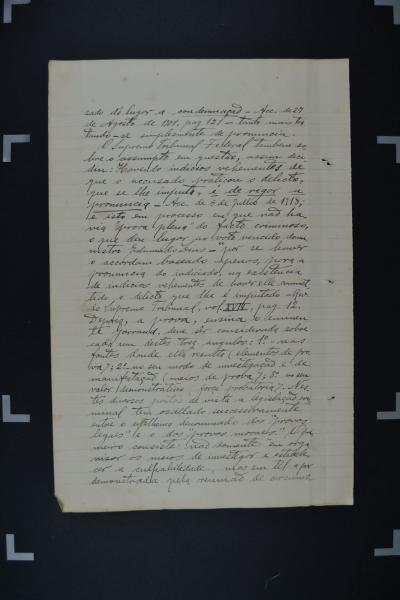 sado dê lugar a condemnação — Acc. de 27
de Agosto de 1901, pag. 121 — tanto mais tra
tando-se simplesmente de pronuncia.
O Supremo Tribunal Federal tambem so-
bre o assumpto em questão, assim deci
diu: Havendo indicios vehementes de
que o accusado praticou o delicto,
que se lhe imputa, é de rigor a
pronuncia — Acc. de de Julho de 1913;
e isto em processo em que não ha
via "prova plena" do facto criminoso,
o que deu lugar ao voto vencido do mi
nistro "por se haver
o accordam baseado apenas, para a
pronuncia do indiciado, na existencia
de indicios vehementes de haver elle commet
tido o delicto que lhe é imputado
do Supremo Tribunal, vol. XVIII, pag. 12.
Depois, a prova, ensina o eminen
te Garraud, deve ser considerada sobre
cada um destes tres angulos: 1º — nas
fontes donde ella resulta (elementos de pro
va); 2º no seu modo de investigação e de
manifestação (meios de prova); 3º no seu
valor (demonstrativo força probatoria). Nes
tes diversos pontos de vista a legislação cri
minal tem oscillado successivamente
entre o systhema denominado das "provas
legaes" e o das "provas moraes". O pri
meiro consiste não somente em orga
nisar os meios de investigar e estabele
cer a culpabilidade, mas em
demonstrada pela reunião de